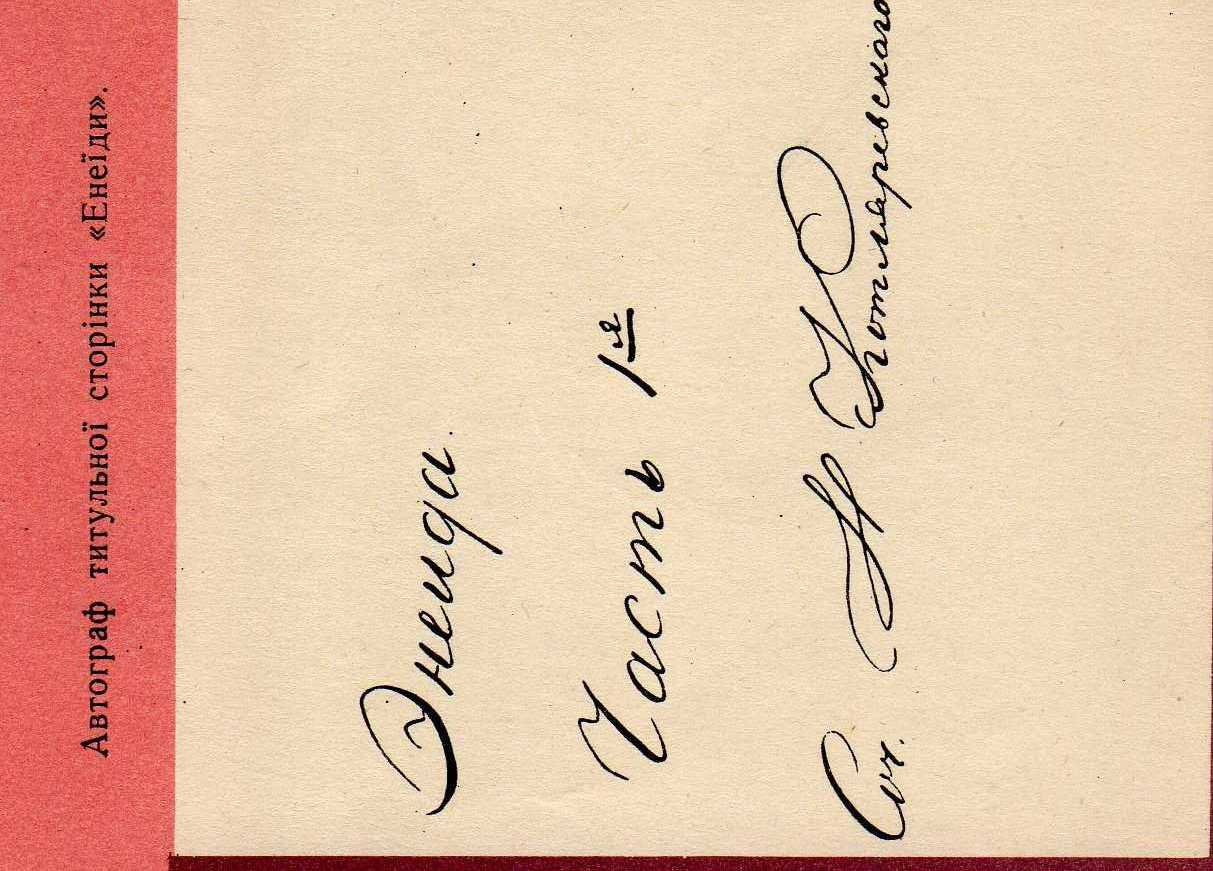 Автограф титульної сторінки «Енеїди».
Энеида.
Часть 1я
Соч. И Котляревского